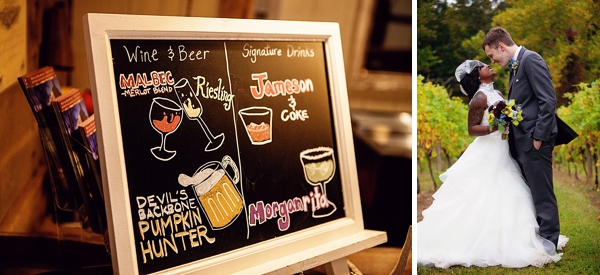 Wine & Beer
MALBEC
-MERLOT BLEND
Riesling
DEVIL'S
BACKBONE
PUMPKIN
HUNTER
Signature Drinks
Jameson
&
COKE
Morganrita